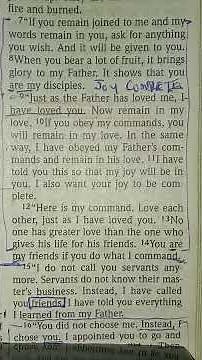 fire and burned.
7"If you remain joined to me and my
words remain in you, ask for anything
you wish. And it will be given to you.
8When you bear a lot of fruit, it brings
glory to my Father. It shows that you
are my disciples. JOY COMPLETE
9"Just as the Father has loved me, I
have loved you. Now remain in my
love. 10If you obey my commands, you
will remain in my love. In the same
way, I have obeyed my Father's com-
mands and remain in his love. 11I have
told you this so that my joy will be in
you. I also want your joy to be com-
plete.
12"Here is my command. Love each
other, just as I have loved you. 13No
one has greater love than the one who
gives his life for his friends. 14You are
my friends if you do what I command.
15"I do not call you servants any
more. Servants do not know their mas-
ter's business. Instead, I have called
you friends. I have told you everything
I learned from my Father.
16"You did not choose me. Instead, I
chose you. I appointed you to go and